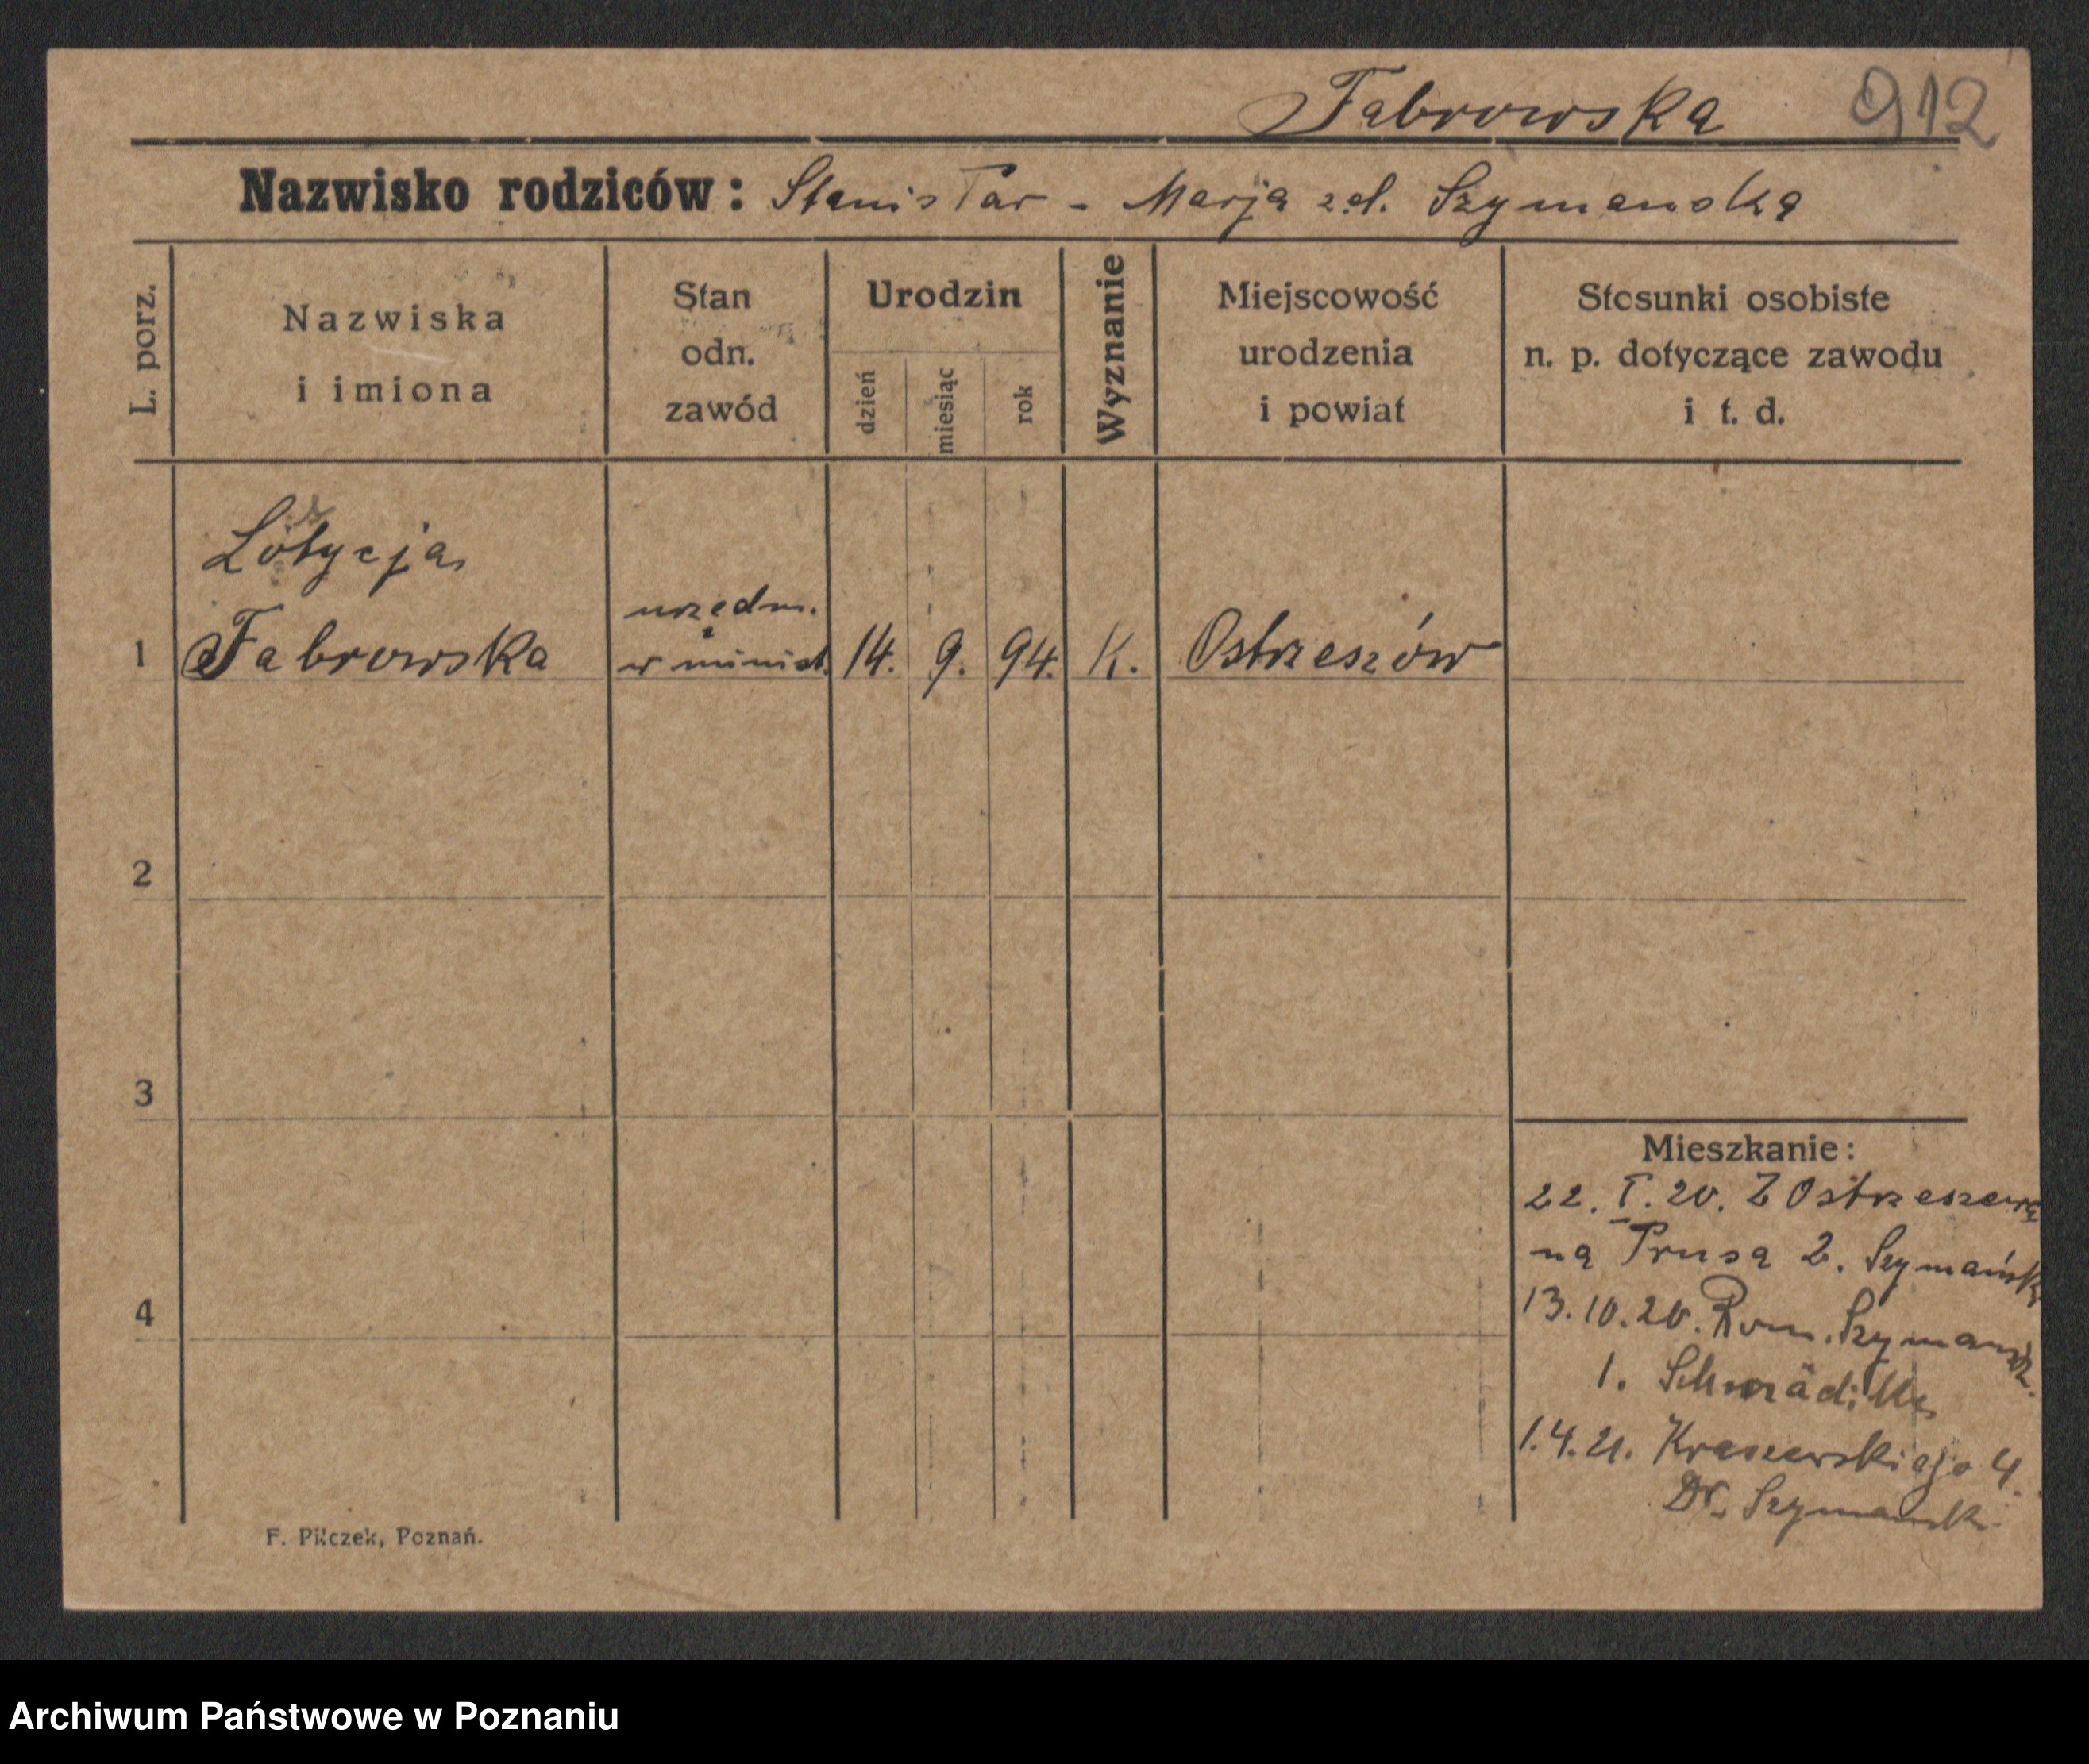 Fabrowska 912
Nazwisko rodziców: Stanisław - Marja zd. Szymańska
L. porz.
Nazwiska
i imiona
Stan
odn.
zawód
Urodzin
dzień
miesiąc
rok
Wyznanie
Miejscowość
urodzenia
i powiat
Stosunki osobiste
n. p. dotyczące zawodu
i t. d.
Fabrowska
urzędn.
w minist.
1
14. 9. 94. K. Ostrzeszów
2
3
4
Mieszkanie:
22. I. 20. Z Ostrzeszowa
na Prusa 2. Szymańsk
13.10.20. Rom. Szymańsk.
1.
1.4.21. Kraszewskiego 4.
Dr. Szymański
F. Pilczek, Poznań.
Archiwum Państwowe w Poznaniu